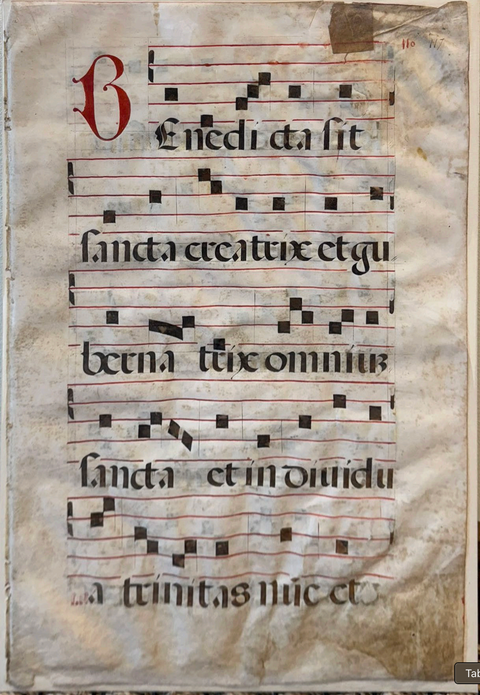 110
BEnedi cta sit
sancta creatrix et gu
berna trix omniũ
sancta et indiuidu
a trinitas nũc et
Tab